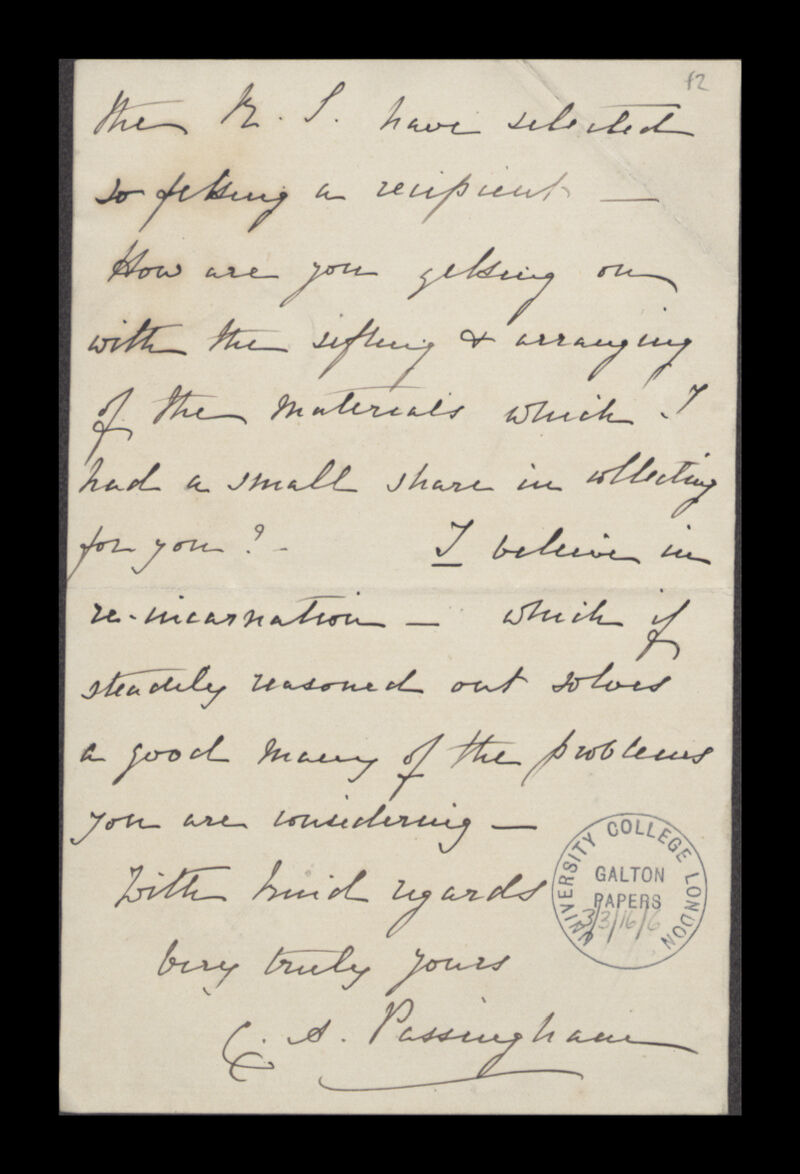 12
the R. S. have selected
so fitting a recipient —
How are you getting on
with the sifting & arranging
of the materials which I
had a small share in collecting
for you? - I believe in
re-incarnation — which if
steadily reasoned out solves
a good many of the problems
you are considering —
With kind regards
Very truly yours
A. Passingham
UNIVERSITY COLLEGE LONDON
GALTON
PAPERS
3/3/16/6